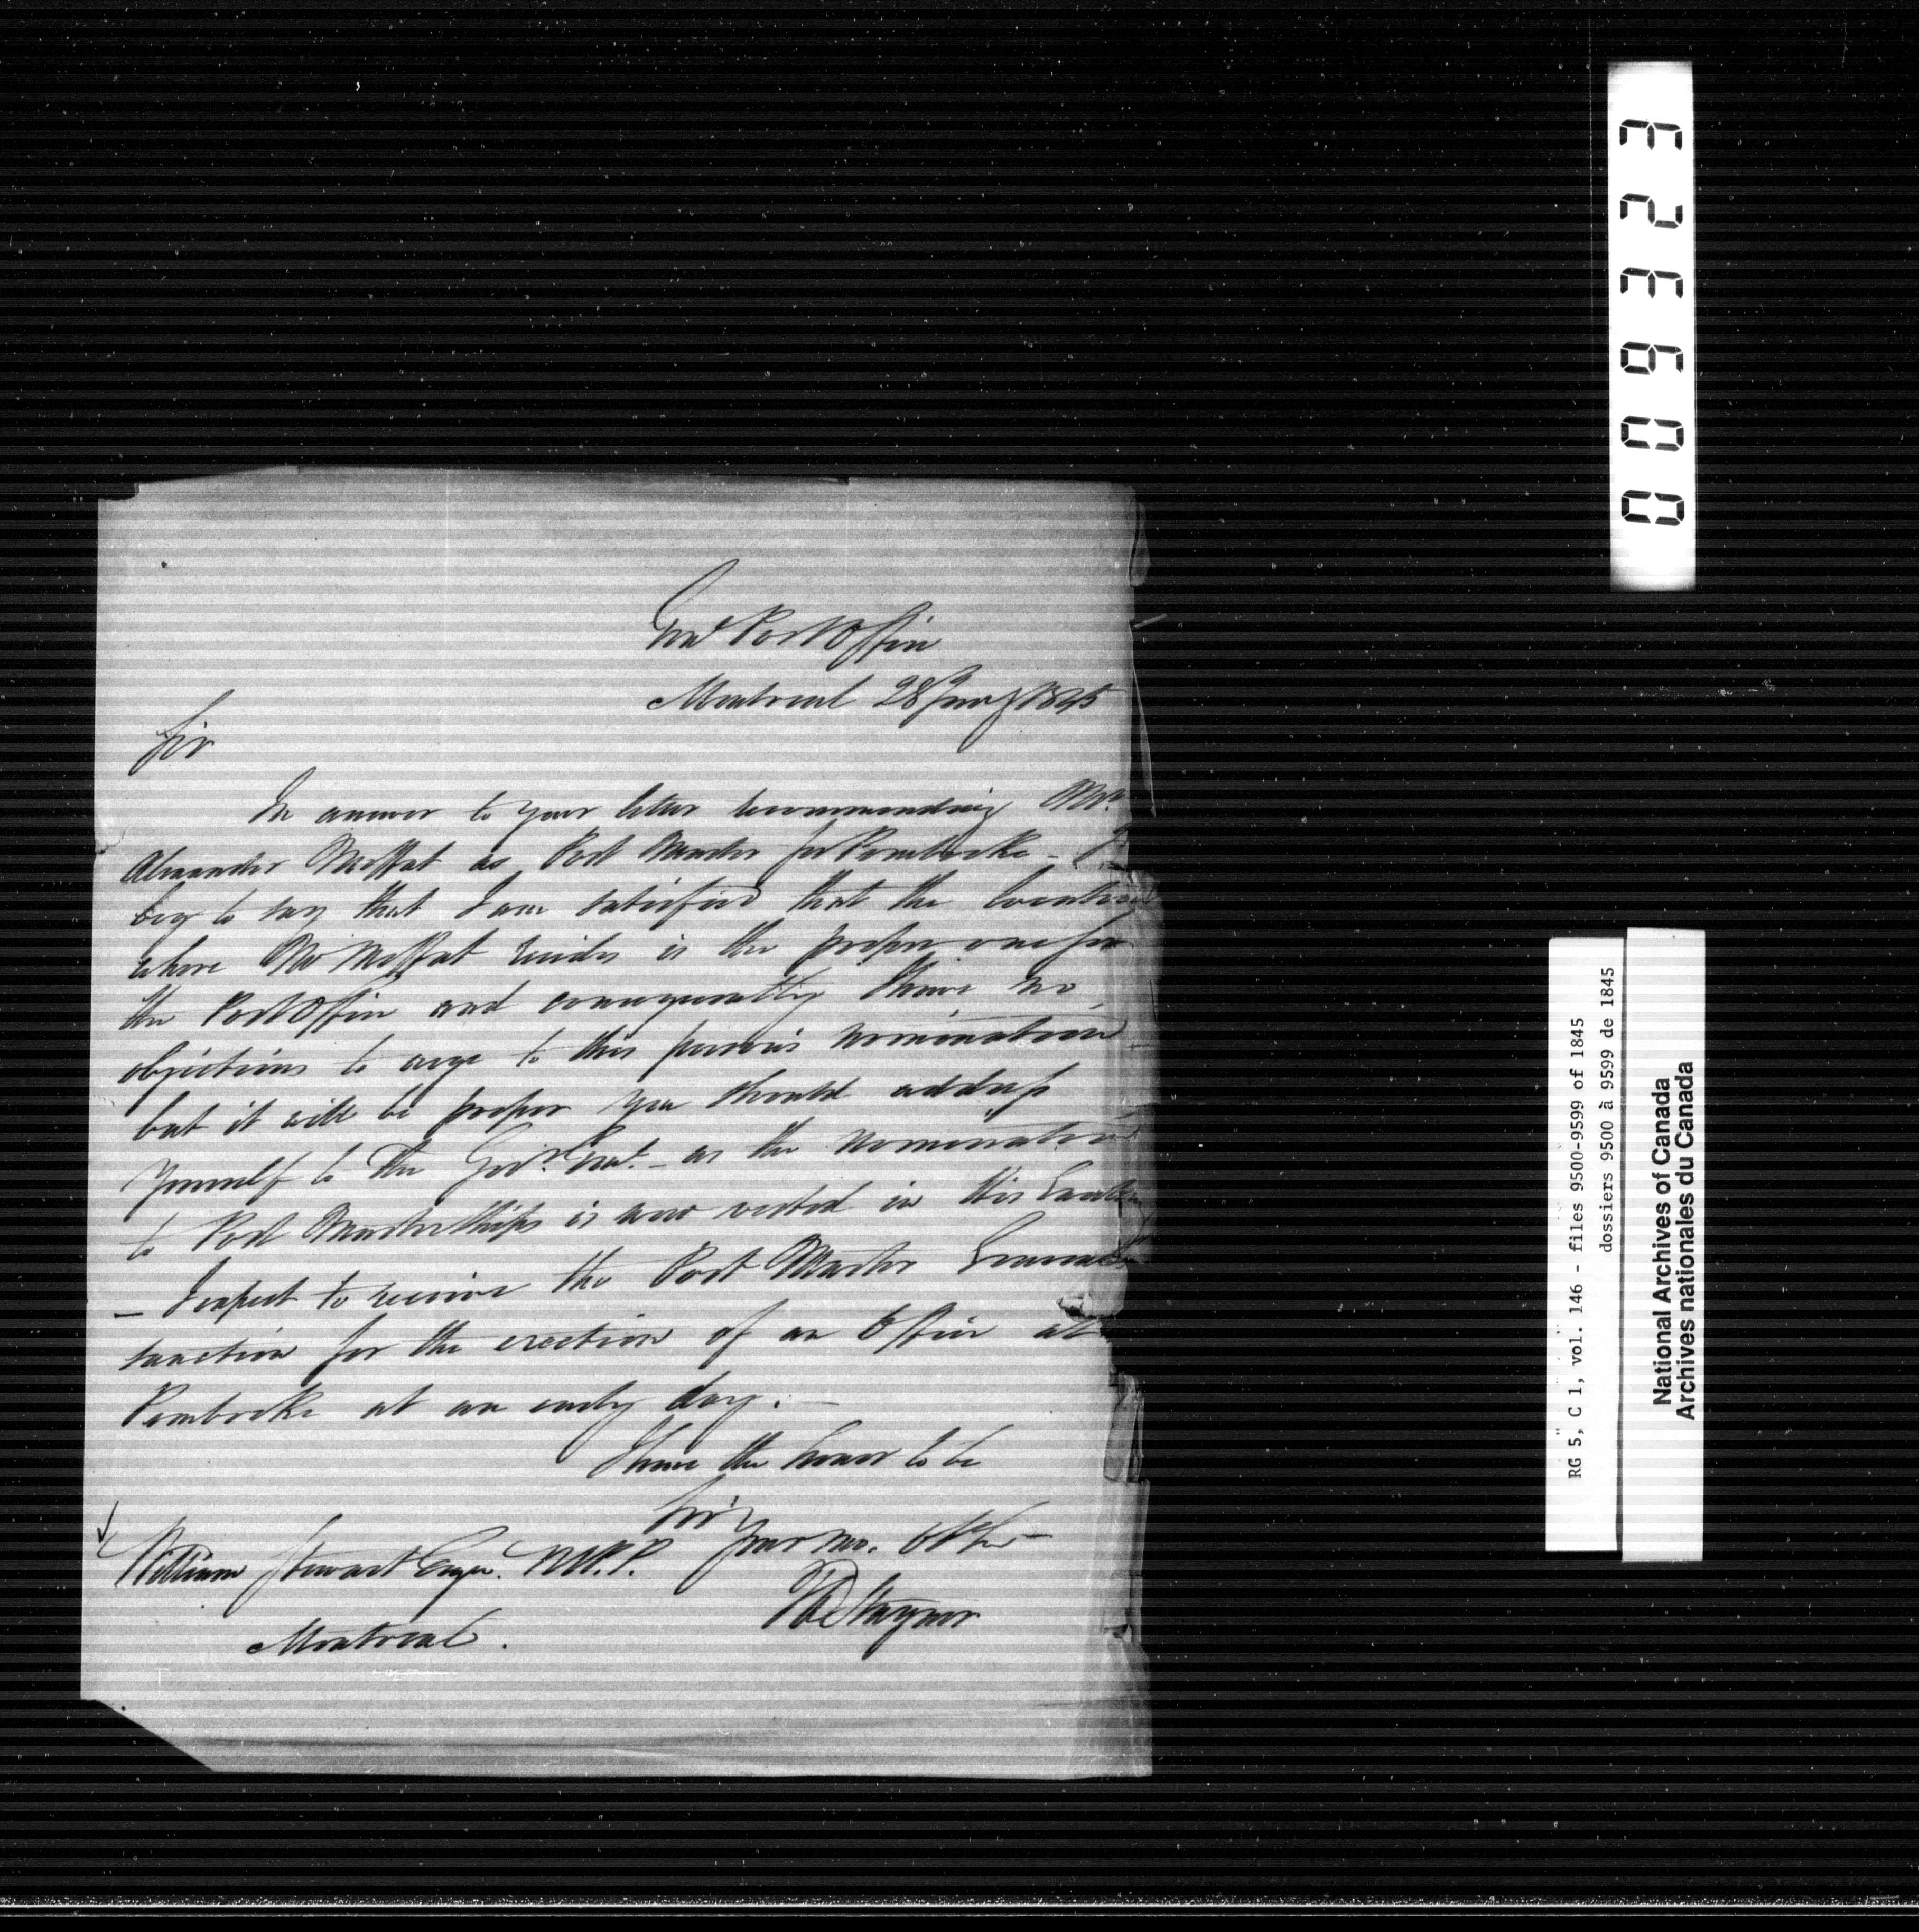 Genl Post Office
Montreal 28 Jany 1845
Sir
In answer to your letter recommending Mr.
Alexander Moffat as Post Master for Pembroke - I
beg to say that I am satisfied that the location
where Mr Moffat resides is the proper one for
the Post Office and consequently I have no
objections to urge to this person's nomination
but it will be proper you should address
yourself to the Govr. Genl. - as the nomination
to Post Masterships is now vested in His Excellency
- I expect to receive the Post Master General's
sanction for the erection of an Office at
Pembroke at an early day. -
I have the honor to be
Sir
Your mo. Obt
William Stewart Esqre. M.P.P.
TA Stayner
Montreal.
003323
RG 5, C 1, vol. 146 - files 9500-9599 of 1845
dossiers 9500 à 9599 de 1845
National Archives of Canada
Archives nationales du Canada